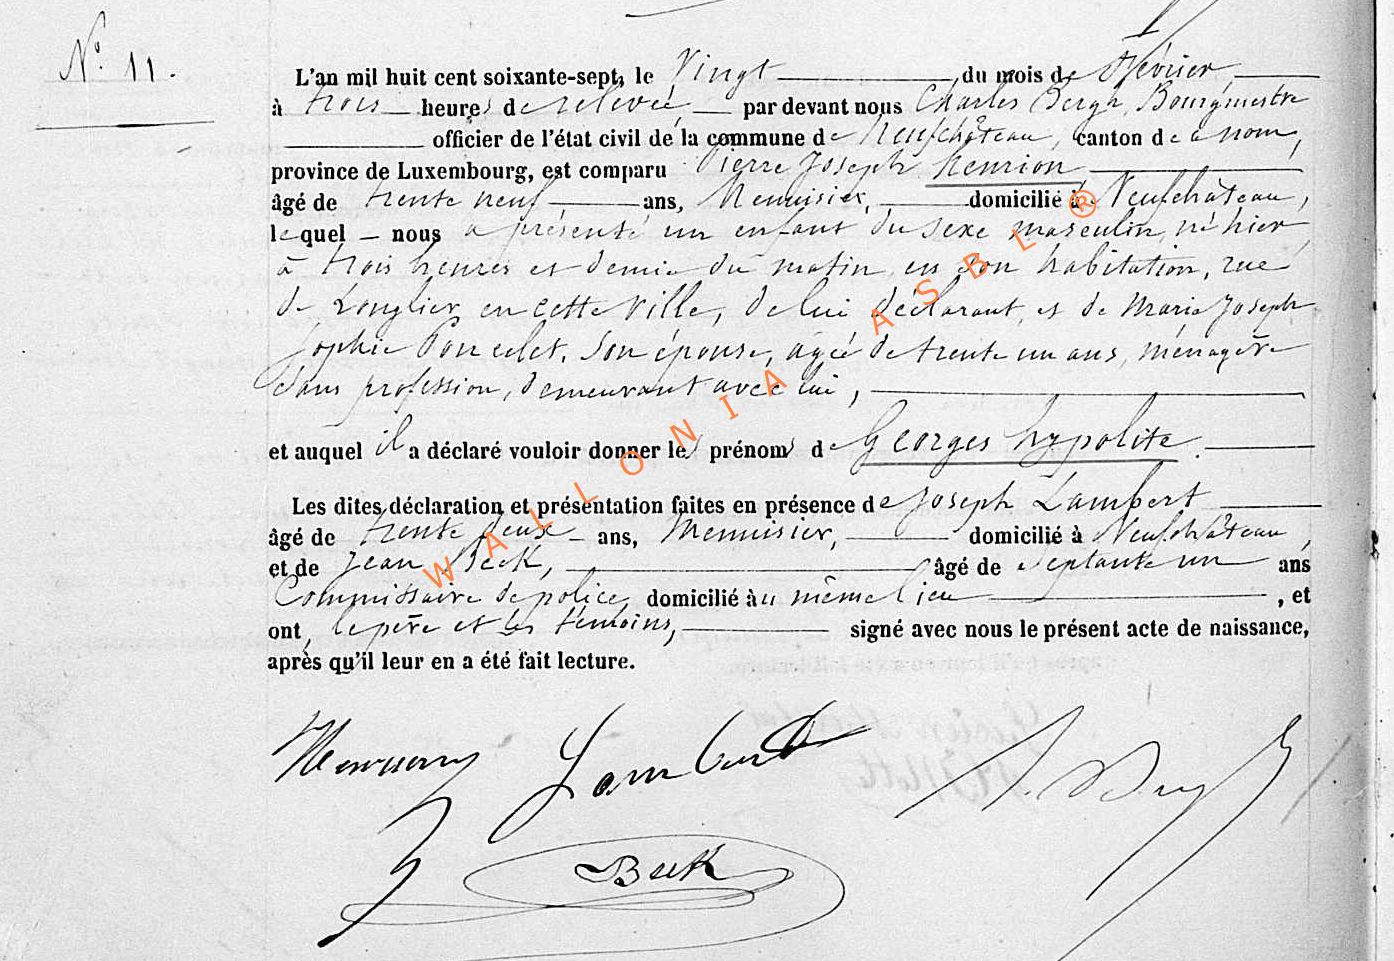 N° 11.
L'an mil huit cent soixante-sept, le Vingt du mois de février,
à trois heures de relevée, par devant nous Charles Bergh, Bourgmestre
officier de l'état civil de la commune de Neufchâteau, canton de ce nom,
province de Luxembourg, est comparu Pierre Joseph Henrion
âgé de trente neuf ans, Menuisier, domicilié à Neufchâteau,
lequel nous a présenté un enfant du sexe masculin, né hier,
à trois heures et demie du matin, en son habitation, rue
de Longlier, en cette ville, de lui déclarant, et de Marie Joseph
Sophie Poncelet, son épouse, agée de trente un ans, ménagère
sans profession, demeurant avec lui,
et auquel il a déclaré vouloir donner les prénoms de Georges hypolite.
Les dites déclaration et présentation faites en présence de Joseph Lambert
âgé de trente deux ans, Menuisier, domicilié à Neufchâteau,
et de Jean Beck, âgé de septante un ans
Commissaire de police, domicilié au même lieu, et
ont, le père et les témoins, signé avec nous le présent acte de naissance,
après qu'il leur en a été fait lecture.
Henrion Lambert
Beck
WALLONIA ASBL ®